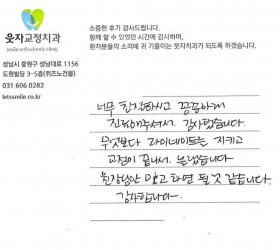 웃자교정치과
smile orthodontic clinic
성남시 중원구 성남대로 1156
도원빌딩 3-5층(위즈노건물)
031 606 0282
letssmile.co.kr
소중한 후기 감사드립니다.
함께 할 수 있었던 시간에 감사하며,
환자분들의 소리에 귀 기울이는 웃자치과가 되도록 하겠습니다.
너무 친절하시고 꼼꼼하게
진료해주셔서 감사했습니다
무엇보다 라미네이트는 지키고
교정이 끝나서 놀랐습니다.
원장님만 믿고 하면 될 것 같습니다.
감사합니다